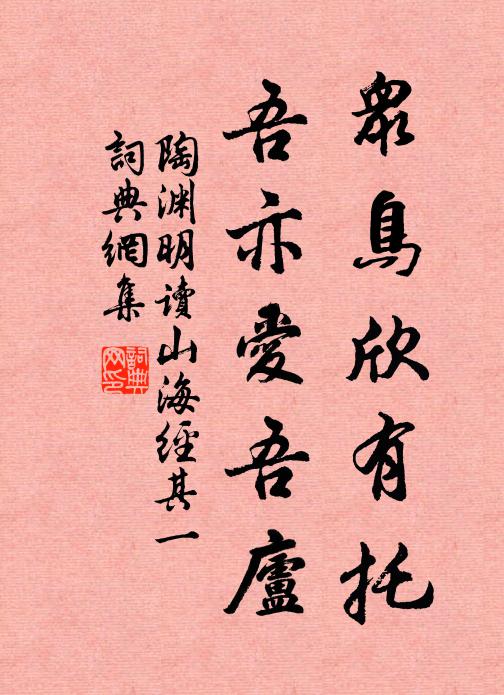 眾鳥欣有托
吾亦愛吾廬
陶渊明讀山海經其一
詞典網集
詞典
网印